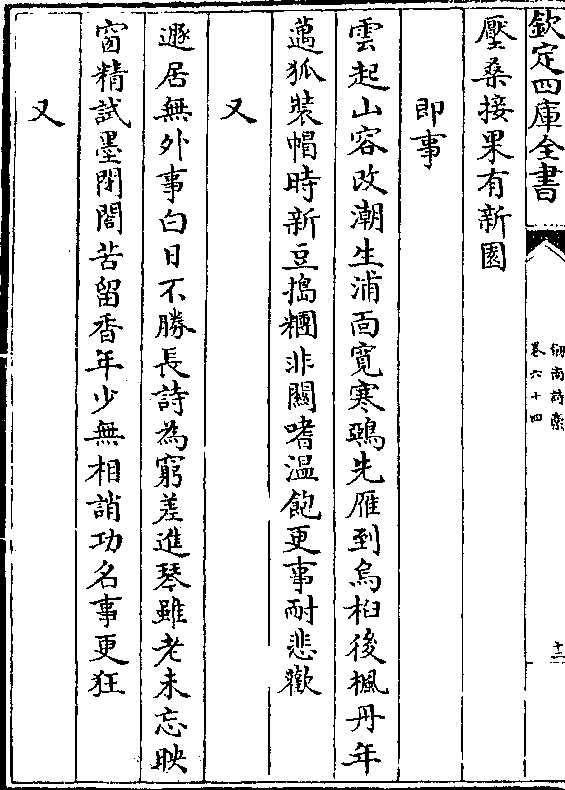 欽定四庫全書
劍南詩藳
卷六十四
十二
壓桑接果有新園
即事
雲起山容改潮生浦面寬寒鴉先雁到烏桕後楓丹年
邁狐裝帽時新豆擣糰非關嗜溫飽更事耐悲歡
又
遯居無外事白日不勝長詩為窮差進琴雖老未忘映
窗精試墨閉閤苦留香年少無相誚功名事更狂
又